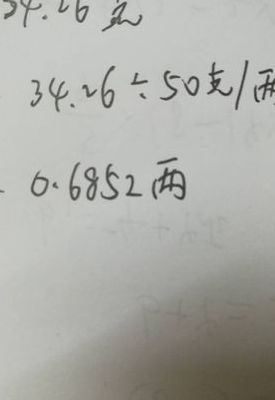 34.26克
34.26÷50克/两
0.6852两